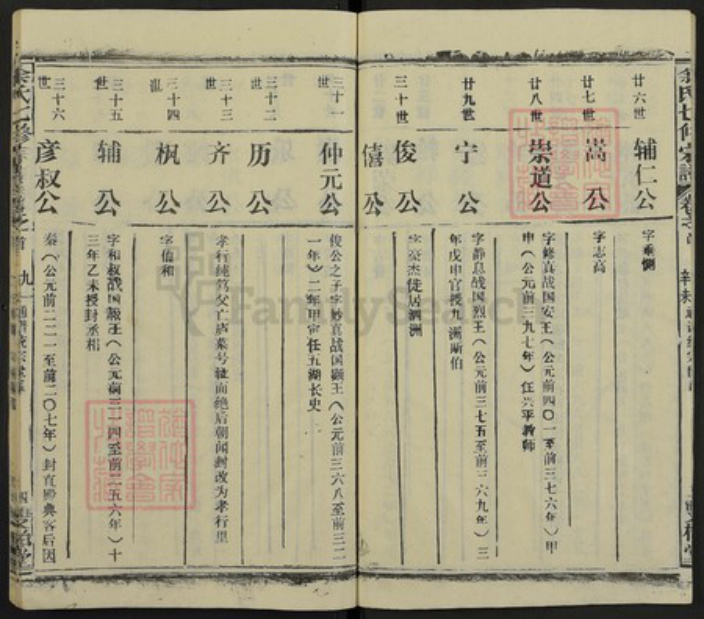 廿六世
辅仁公
字秉恻
廿七世
嵩公
字志高
廿八世
崇道公
字修真战国安王(公元前四〇一至前三七六年)甲
申(公元前三九七年)任兴平教师
廿九世
宁公
字静息战国烈王(公元前三七五至前三六九年)三
年戊申官授九洲斯伯
三十世
俊公
字豪杰徙居泗洲
僖公
三十一世
仲元公
俊公之子字妙真战国显王(公元前三六八至前三二
一年)二年甲寅任五湖长史
三十二世
历公
三十三世
齐公
孝行纯笃父亡庐墓号泣而绝后朝闻封改为孝行里
三十四
枫公
字值和
三十五世
辅公
字和叔战国赧王(公元前三一四至前二五六年)十
三年乙未授封丞相
三十六世
彦叔公
秦(公元前二二一至前二〇七年)封直殿典客后因
余氏七修宗谱
卷之首
九一
FamilySearch